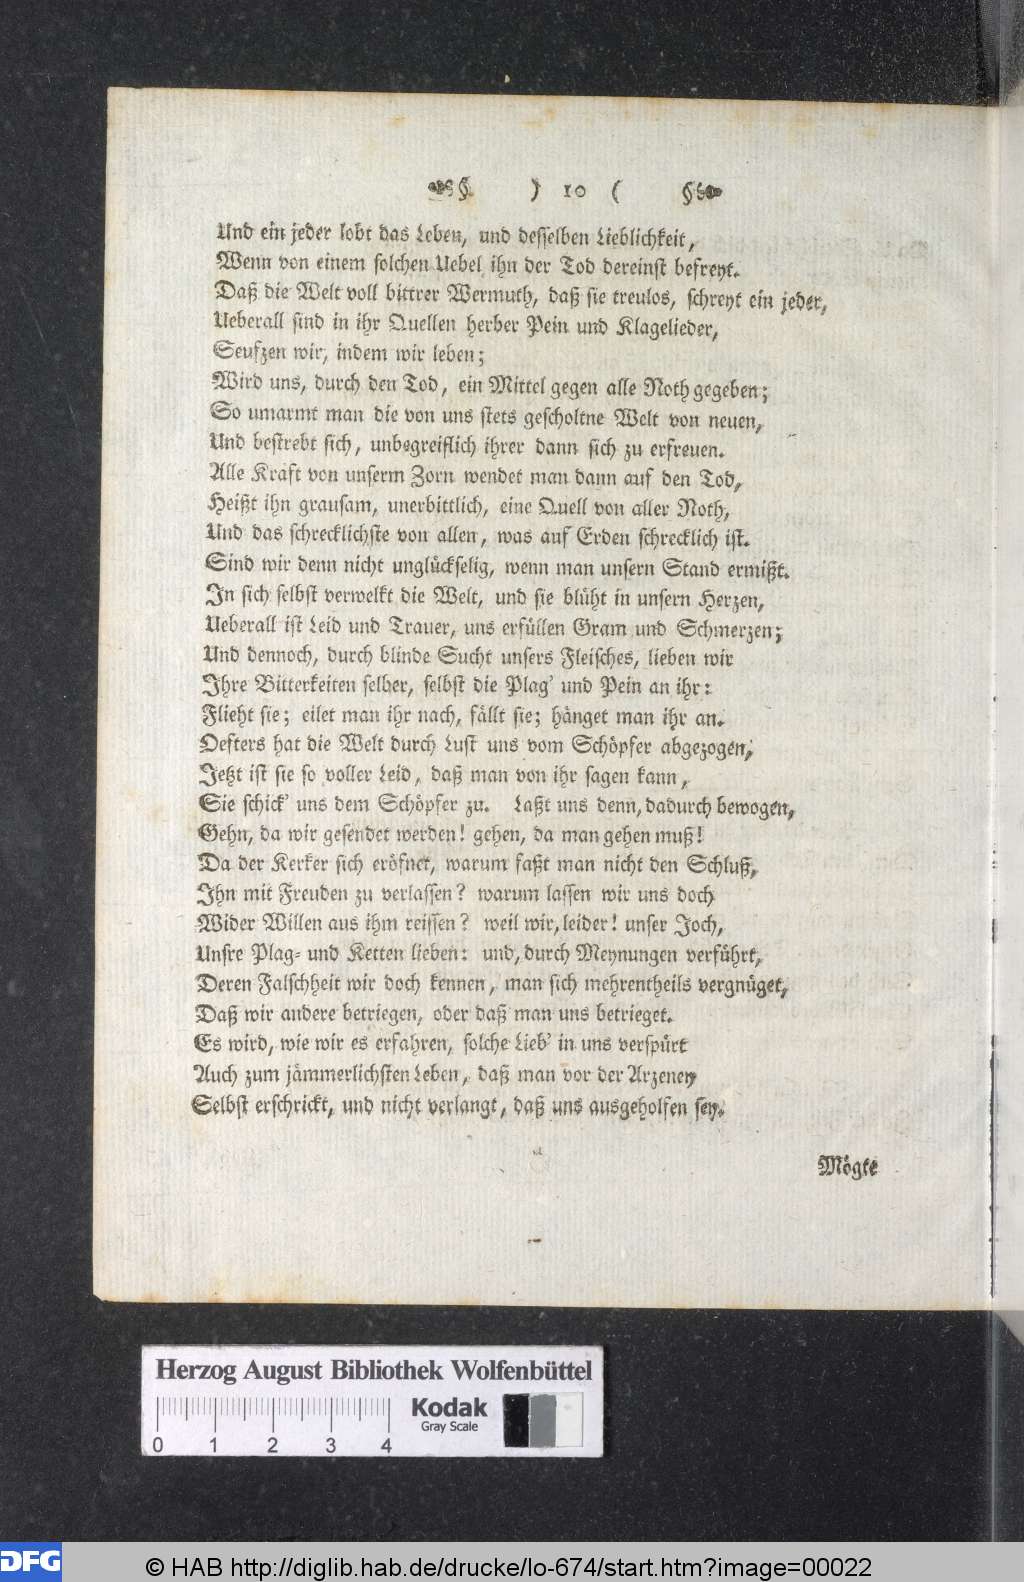 ) 10 (
Und ein jeder lobt das Leben, und desselben Lieblichkeit,
Wenn von einem solchen Uebel ihn der Tod dereinst befreyt.
Daß die Welt voll bittrer Wermuth, daß sie treulos, schreyt ein jeder,
Ueberall sind in ihr Quellen herber Pein und Klagelieder,
Seufzen wir, indem wir leben;
Wird uns, durch den Tod, ein Mittel gegen alle Noth gegeben;
So umarmt man die von uns stets gescholtne Welt von neuen,
Und bestrebt sich, unbegreiflich ihrer dann sich zu erfreuen.
Alle Kraft von unserm Zorn wendet man dann auf den Tod,
Heißt ihn grausam, unerbittlich, eine Quell von aller Noth,
Und das schrecklichste von allen, was auf Erden schrecklich ist.
Sind wir denn nicht unglückselig, wenn man unsern Stand ermißt.
In sich selbst verwelkt die Welt, und sie blüht in unsern Herzen,
Ueberall ist Leid und Trauer, uns erfüllen Gram und Schmerzen;
Und dennoch, durch blinde Sucht unsers Fleisches, lieben wir
Ihre Bitterkeiten selber, selbst die Plag' und Pein an ihr:
Flieht sie; eilet man ihr nach, fällt sie; hänget man ihr an.
Oefters hat die Welt durch Lust uns vom Schöpfer abgezogen,
Jetzt ist sie so voller Leid, daß man von ihr sagen kann,
Sie schick' uns dem Schöpfer zu. Laßt uns denn, dadurch bewogen,
Gehn, da wir gesendet werden! gehen, da man gehen muß!
Da der Kerker sich eröfnet, warum faßt man nicht den Schluß,
Ihn mit Freuden zu verlassen? warum lassen wir uns doch
Wider Willen aus ihm reissen? weil wir, leider! unser Joch,
Unsre Plag- und Ketten lieben: und, durch Meynungen verführt,
Deren Falschheit wir doch kennen, man sich mehrentheils vergnüget,
Daß wir andere betriegen, oder daß man uns betrieget.
Es wird, wie wir es erfahren, solche Lieb' in uns verspürt
Auch zum jämmerlichsten Leben, daß man vor der Arzeney
Selbst erschrickt, und nicht verlangt, daß uns ausgeholfen sey.
Mögte
Herzog August Bibliothek Wolfenbüttel
Kodak
Gray Scale
0 1 2 3 4
DFG © HAB http://diglib.hab.de/drucke/lo-674/start.htm?image=00022